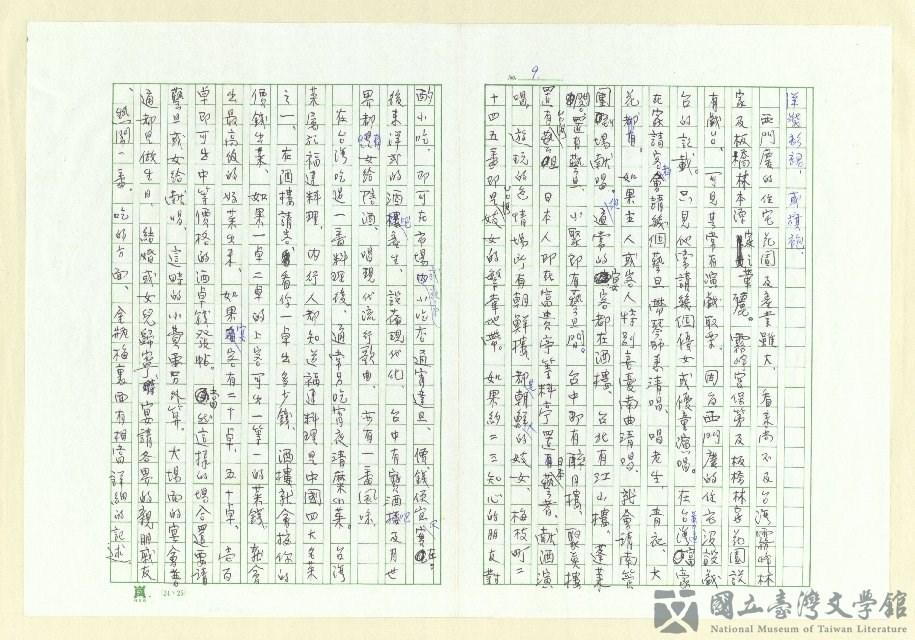 No. 9.
洋裝彩裙，或旗袍。
西門慶的住宅花園及產業雖大，看來尚不及台灣霧峰林
家及板橋林本源家之華麗。霧峰宮保第及板橋林家花園設
有戲台，可見其常有演戲取樂。因為西門慶的住宅沒設戲
台的記載。只見他常請幾個優女或優童演唱。在台灣富豪
在家請客者會請幾個藝旦帶琴師來清唱、唱老生、青衣、大
花都有。如果主人或客人特別喜愛南曲清唱，就會請南管
團體唱獻唱。通常的宴客都在酒樓，台北有江山樓、蓬萊
閣還有藝旦，小聚即有藝旦間。台中即有醉月樓、聚英樓
還有藝旦，日本人即在富貴亭等料亭，還有日本藝者獻酒演
唱。遊玩的色情場所有朝鮮樓，都是朝鮮的妓女，梅枝町二
十四五番即是妓女的繁華地帶。如果約二三知心的朋友對
酌小吃，即可在市場或小吃店通宵達旦，價錢便宜實在。
後來洋式的酒吧產生，設備現代化，台中有寶酒吧及月世
界都有女給陪酒、唱現代流行歌曲，亦有一番風味。
在台灣吃過一番料理後，通常另吃宵夜清糜小菜。台灣
菜屬於福建料理，內行人都知道福建料理是中國四大名菜
之一，在酒樓請客看你一卓出多少錢，酒樓就會按你的
價錢出菜，如果一卓二卓的上客可出一等一的菜錢，就會
出最高級的好菜出來，如果宴客有二十卓、五十卓、壹百
卓即可出中等價格的酒卓錢發帖。當然這樣的場合還要請
藝旦或女給獻唱，這時的小費要另外算。大場面的宴會普
通都是做生日、結婚或女兒歸寧，宴請各界的親朋戚友
、熱鬧一番。吃的方面，金瓶梅裏面有相當詳細的記述。
24×25
國立臺灣文學館
National Museum of Taiwan Literature